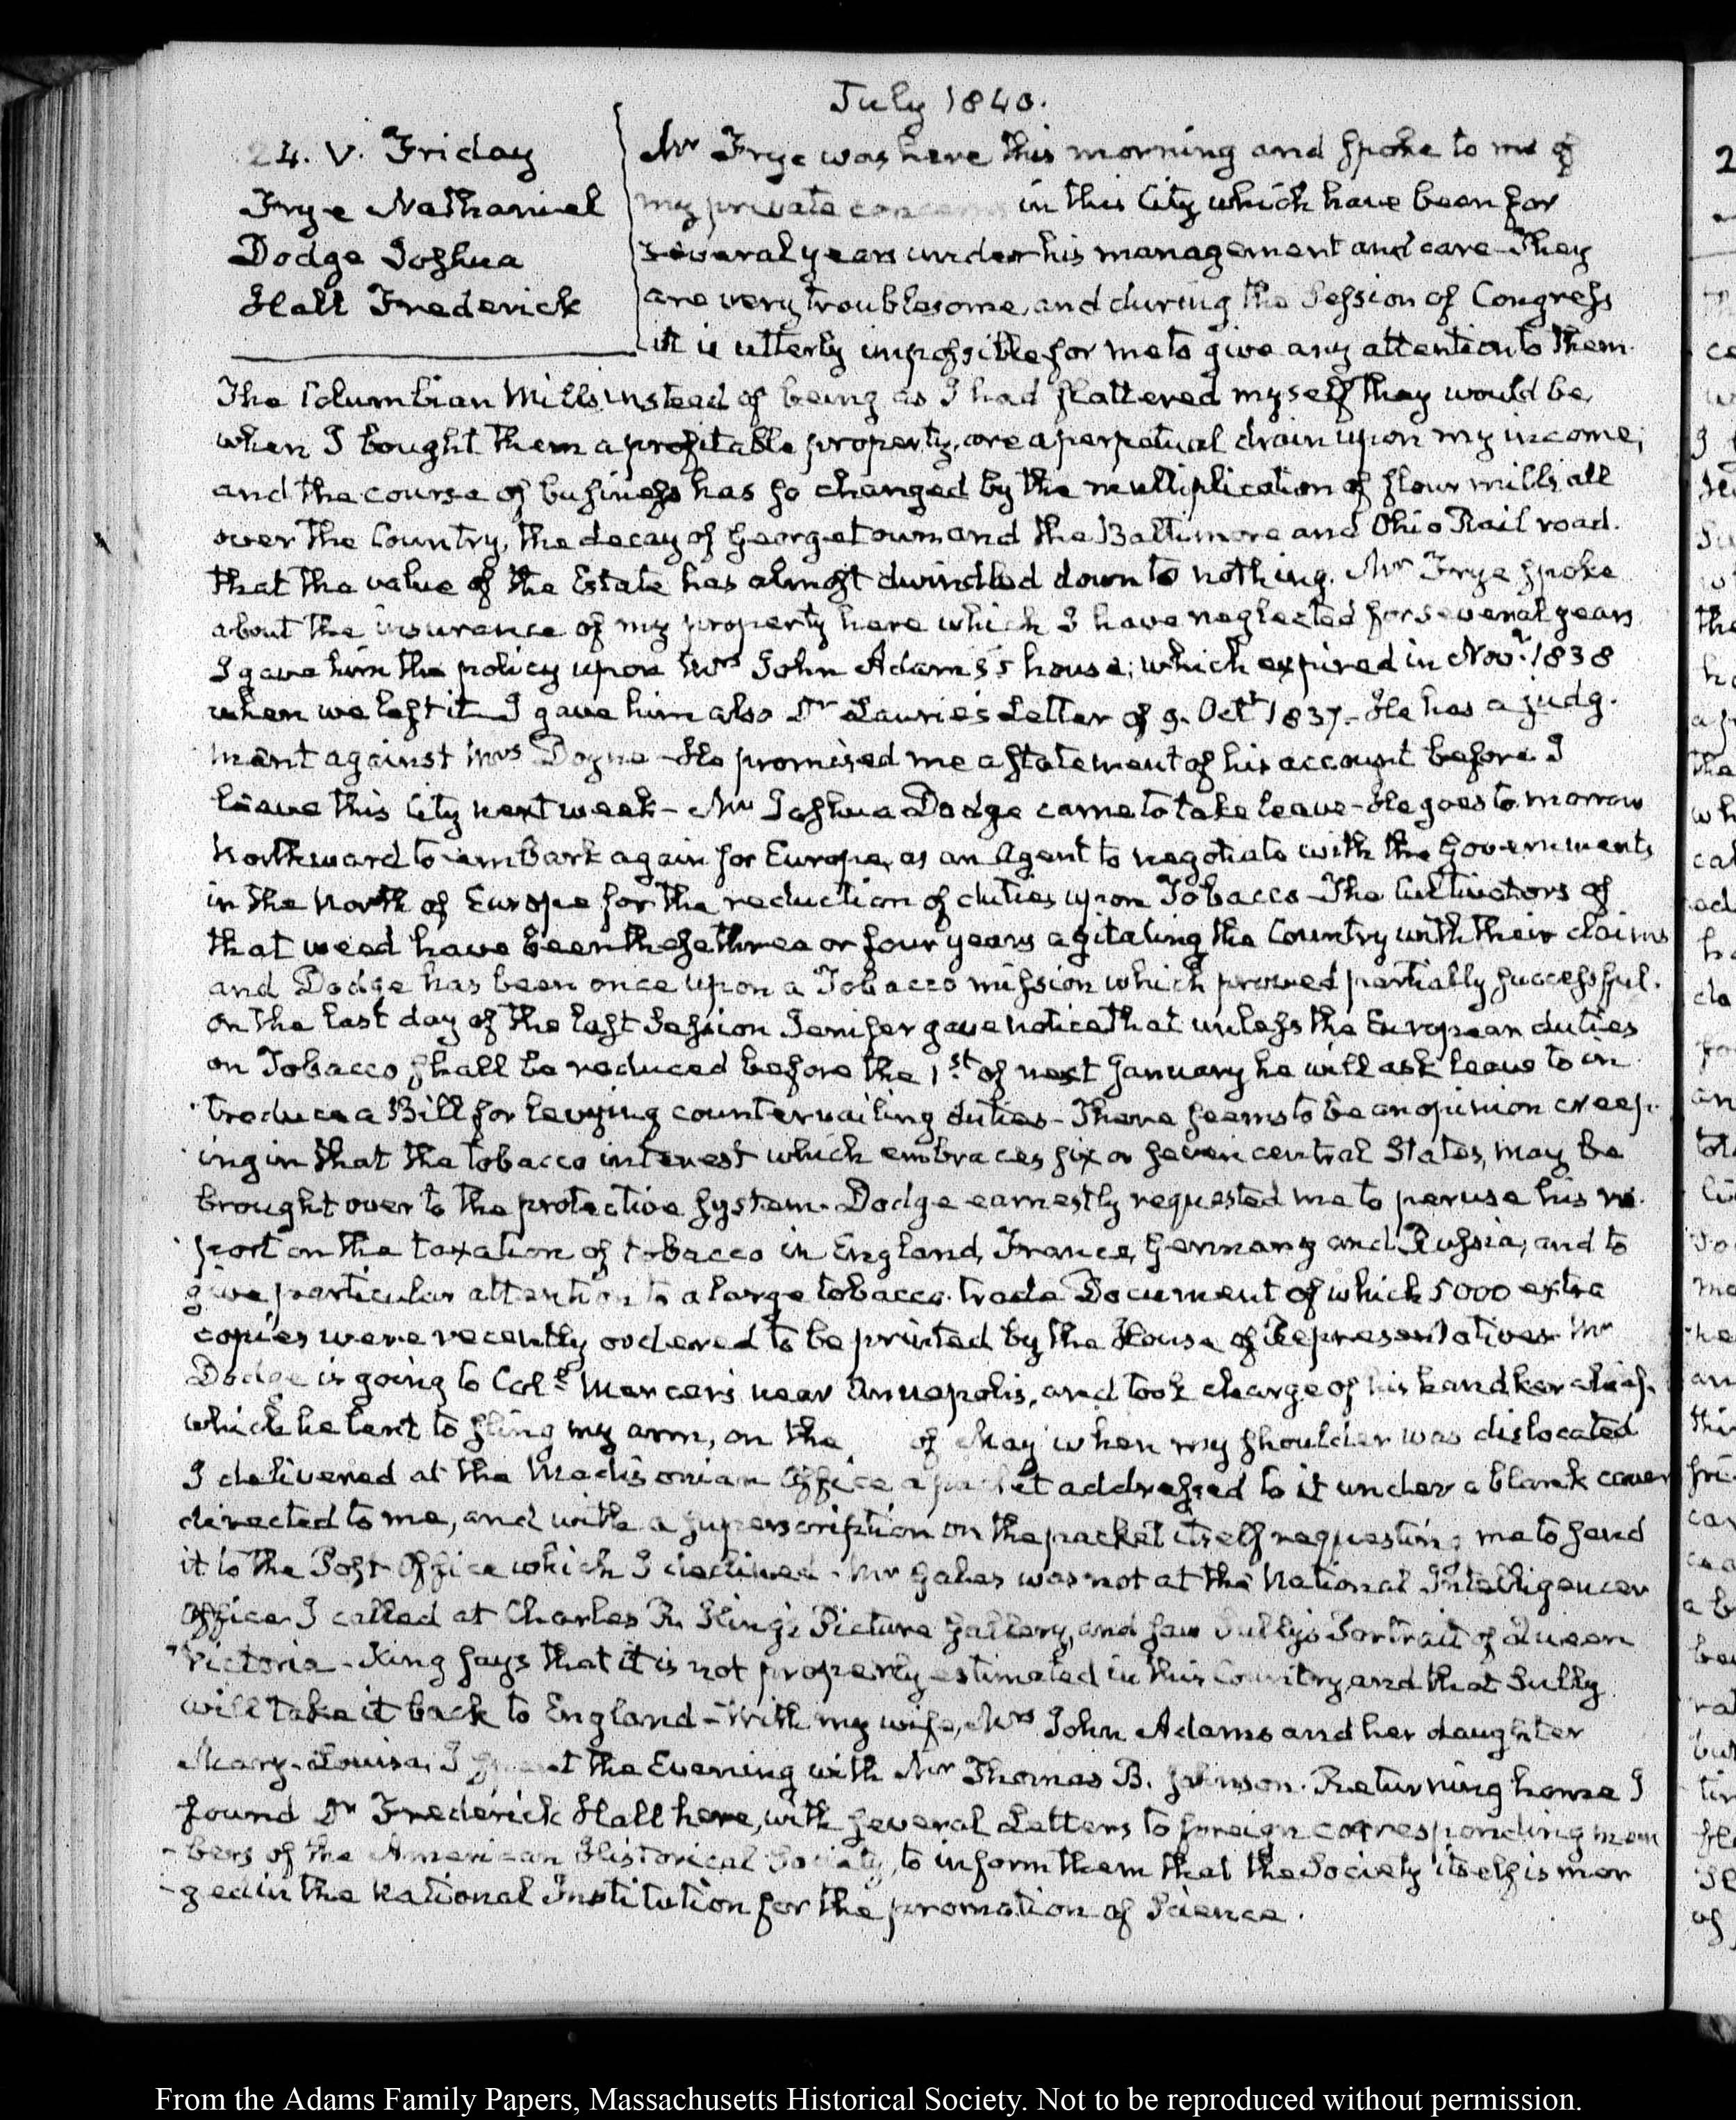 July 1840.
24. V. Friday
Frye Nathaniel
Dodge Joshua
Hall Frederick
Mr Frye was here this morning and spoke to me of
my private concerns in this City which have been for
several years under his management and care - They
are very troublesome, and during the Session of Congress
it is utterly impossible for me to give any attention to them.
The Columbian Mills, instead of being as I had flattered myself they would be,
when I bought them a profitable property, are a perpetual drain upon my income;
and the course of business has so changed by the multiplication of flour mills all
over the Country, the decay of Georgetown and the Baltimore and Ohio Rail road.
that the value of the Estate has almost dwindled down to nothing. Mr Frye spoke
about the insurance of my property here which I have neglected for several years
I gave him the policy upon Mrs John Adams's house; which expired in Novr. 1838
when we left it - I gave him also Dr Laurie's Letter of 9. Octr 1837 - He has a judg-
ment against Mrs Doyne - He promised me a statement of his account before I
leave this City next week - Mr Joshua Dodge came to take leave - He goes to morrow
Northward to embark again for Europe, as an Agent to negotiate with the Governments
in the North of Europe for the reduction of duties upon Tobacco - The Cultivators of
that weed have been these three or four years agitating the Country with their claims
and Dodge has been once upon a Tobacco mission which proved partially successful.
On the last day of the last Session Jenifer gave notice that unless the European duties
on Tobacco shall be reduced before the 1st. of next January he will ask leave to in
troduce a Bill for levying countervailing duties - There seems to be an opinion creep-
ing in that the tobacco interest which embraces six or seven central States, may be
brought over to the protective system. Dodge earnestly requested me to peruse his re-
port on the taxation of tobacco in England, France, Germany and Russia, and to
give particular attention to a large tobacco trade Document of which 5000 extra
copies were recently ordered to be printed by the House of Representatives. Mr
Dodge is going to Coll. Mercer's near Annapolis, and took charge of his handkerchief,
which he lent to sling my arm, on the of May when my shoulder was dislocated
I delivered at the Madisonian Office a packet addressed to it under a blank cover
directed to me, and with a superscription on the packet itself requesting me to send
it to the Post Office which I declined - Mr Gales was not at the National Intelligencer
Office. I called at Charles B. King's Picture Gallery, and saw Sully's Portrait of Queen
Victoria - King says that it is not properly estimated in this Country and that Sully
will take it back to England - With my wife, Mrs John Adams and her daughter
Mary-Louisa, I spent the Evening with Mr Thomas B. Johnson. Returning home I
found Dr Frederick Hall here, with several Letters to foreign corresponding mem
-bers of the American Historical Society, to inform them that the Society itself is mer
-ged in the National Institution for the promotion of Science.
From the Adams Family Papers, Massachusetts Historical Society. Not to be reproduced without permission.